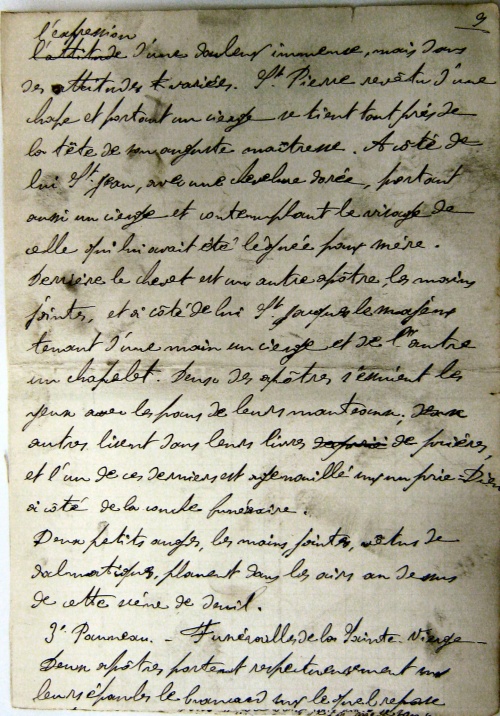 l'expression
l'attitude d'une douleur immense, mais dans
des attitudes variées. St. Pierre revêtu d'une
chape et portant un cierge se tient tout près de
la tête de son auguste maîtresse. A côté de
lui St. Jean, avec une chevelure dorée, portant
aussi un cierge et contemplant le visage de
celle qui lui avait été léguée pour mère.
Derrière le chevet est un autre apôtre, les mains
jointes, et à côté de lui St. Jacques le majeur
tenant d'une main un cierge et de l'autre
un chapelet. Deux des apôtres s'essuient les
yeux avec les pans de leurs manteaux; deux
autres lisent dans leurs livres de prières,
et l'un de ces derniers est agenouillé sur un prie-Dieu
à côté de la couche funéraire.
Deux petits anges, les mains jointes, vêtus de
dalmatiques, planent dans les airs au dessus
de cette scène de deuil.
3e Panneau. - Funérailles de la Sainte Vierge -
Deux apôtres portent respectueusement sur
leurs épaules le brancard sur lequel repose